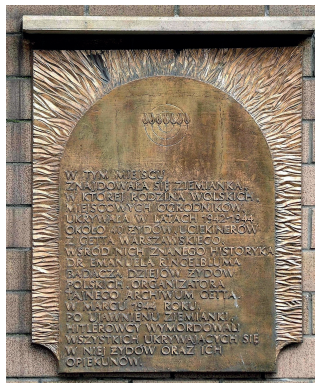 W TYM MIEJSCU
ZNAJDOWAŁA SIĘ ZIEMIANKA,
W KTÓREJ RODZINA WOLSKICH,
MIEJSCOWYCH OGRODNIKÓW
UKRYWAŁA W LATACH 1942-1944
OKOŁO ŻYDÓW, UCIEKINIERÓW
Z GETTA WARSZAWSKIEGO
WŚRÓD NICH ZNANEGO HISTORYKA
DR EMANUELA RINGELBLUMA
BADACZA DZIEJÓW ŻYDÓW
POLSKICH I ORGANIZATORA
TAJNEGO ARCHIWUM GETTA.
W MARCU 1944 ROKU
PO UJAWNIENIU ZIEMIANKI,
HITLEROWCY WYMORDOWALI
WSZYSTKICH UKRYWAJĄCYCH SIĘ
W NIEJ ŻYDÓW ORAZ ICH
OPIEKUNÓW.